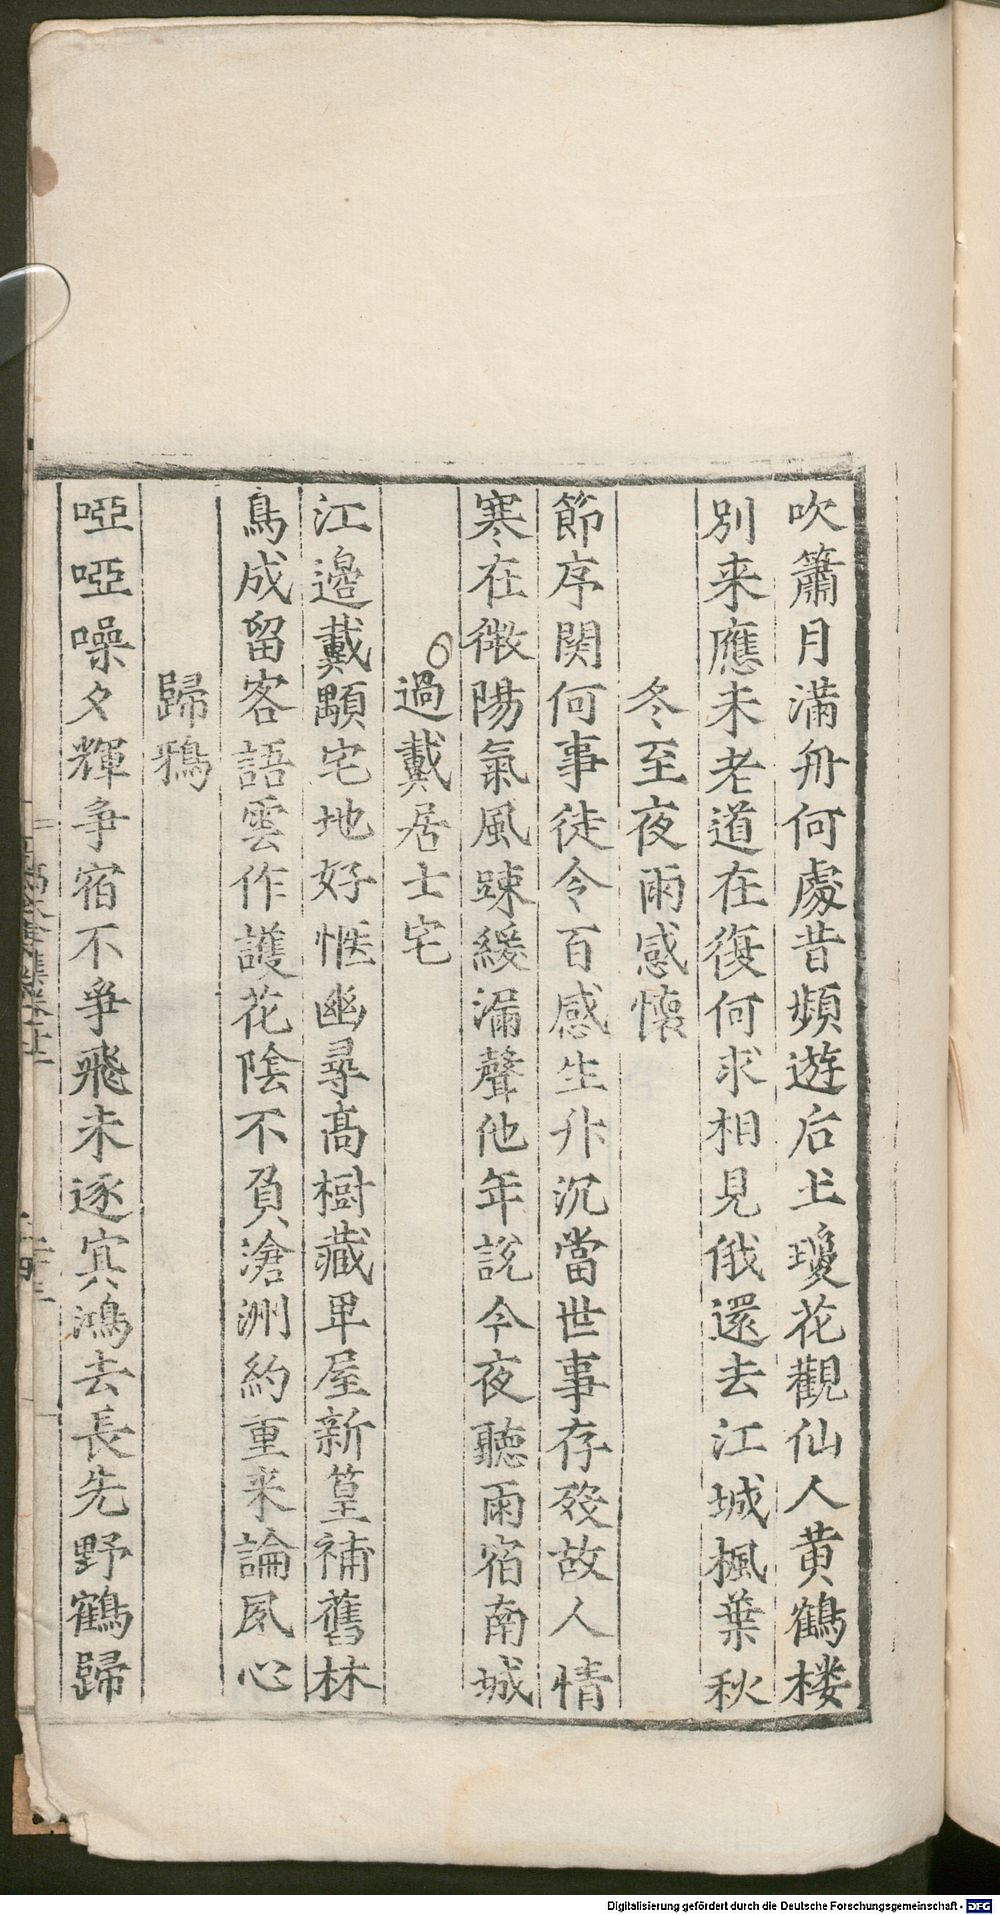 吹簫月滿舟何處昔頻遊后土瓊花觀仙人黄鶴楼
別来應未老道在復何求相見俄還去江城楓葉秋
冬至夜雨感懷
節序関何事徒令百感生升沉當世事存殁故人情
寒在微陽氣風踈緩漏聲他年說今夜聽雨宿南城
過戴居士宅
江邉戴顒宅地好愜幽尋髙樹藏卑屋新篁補舊林
鳥成留客語雲作護花陰不負滄洲約重来論夙心
歸鴉
啞啞噪夕輝争宿不爭飛未逐賔鴻去長先野鶴歸
Digitalisierung gefördert durch die Deutsche Forschungsgemeinschaft - DFG